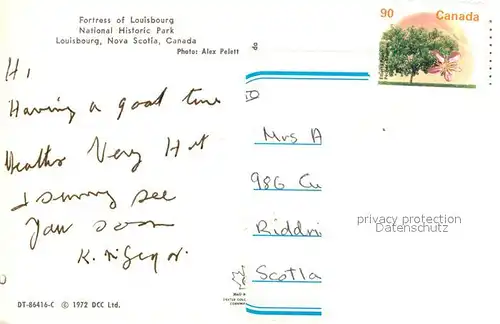 Fortress of Louisbourg
National Historic Park
Louisbourg, Nova Scotia, Canada
Photo: Alex Pelett
Hi
Having a good time
Weather Very Hot
& sunny see
You soon
DT-86416-C © 1972 DCC Ltd.
90 Canada
Mrs A
986 Cu
Riddri
Scotla
privacy protection
Datenschutz